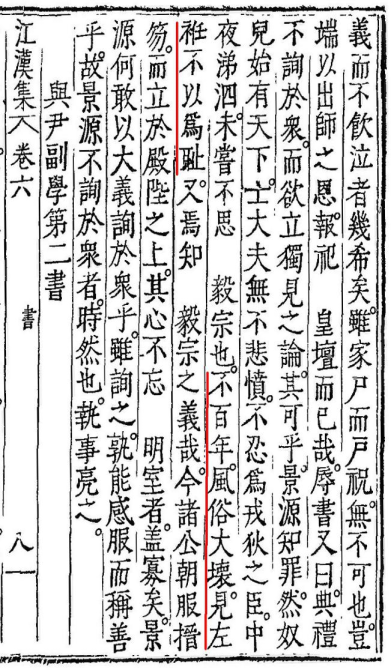 義而不飮泣者幾希矣雖家尸而戶祝無不可也豈
端以出師之恩報祀 皇壇而已哉辱書又曰典禮
不詢於衆而欲立獨見之論其可乎景源知罪然奴
兒始有天下士大夫無不悲憤不忍爲戎狄之臣中
夜涕泗未嘗不思 毅宗也不百年風俗大壞見左
袵不以爲耻又焉知 毅宗之義哉今諸公朝服搢
笏而立於殿陛之上其心不忘 明室者盖寡矣景
源何敢以大義詢於衆乎雖詢之孰能感服而稱善
乎故景源不詢於衆者時然也執事亮之
與尹副學第二書
江漢集 卷六 書 八